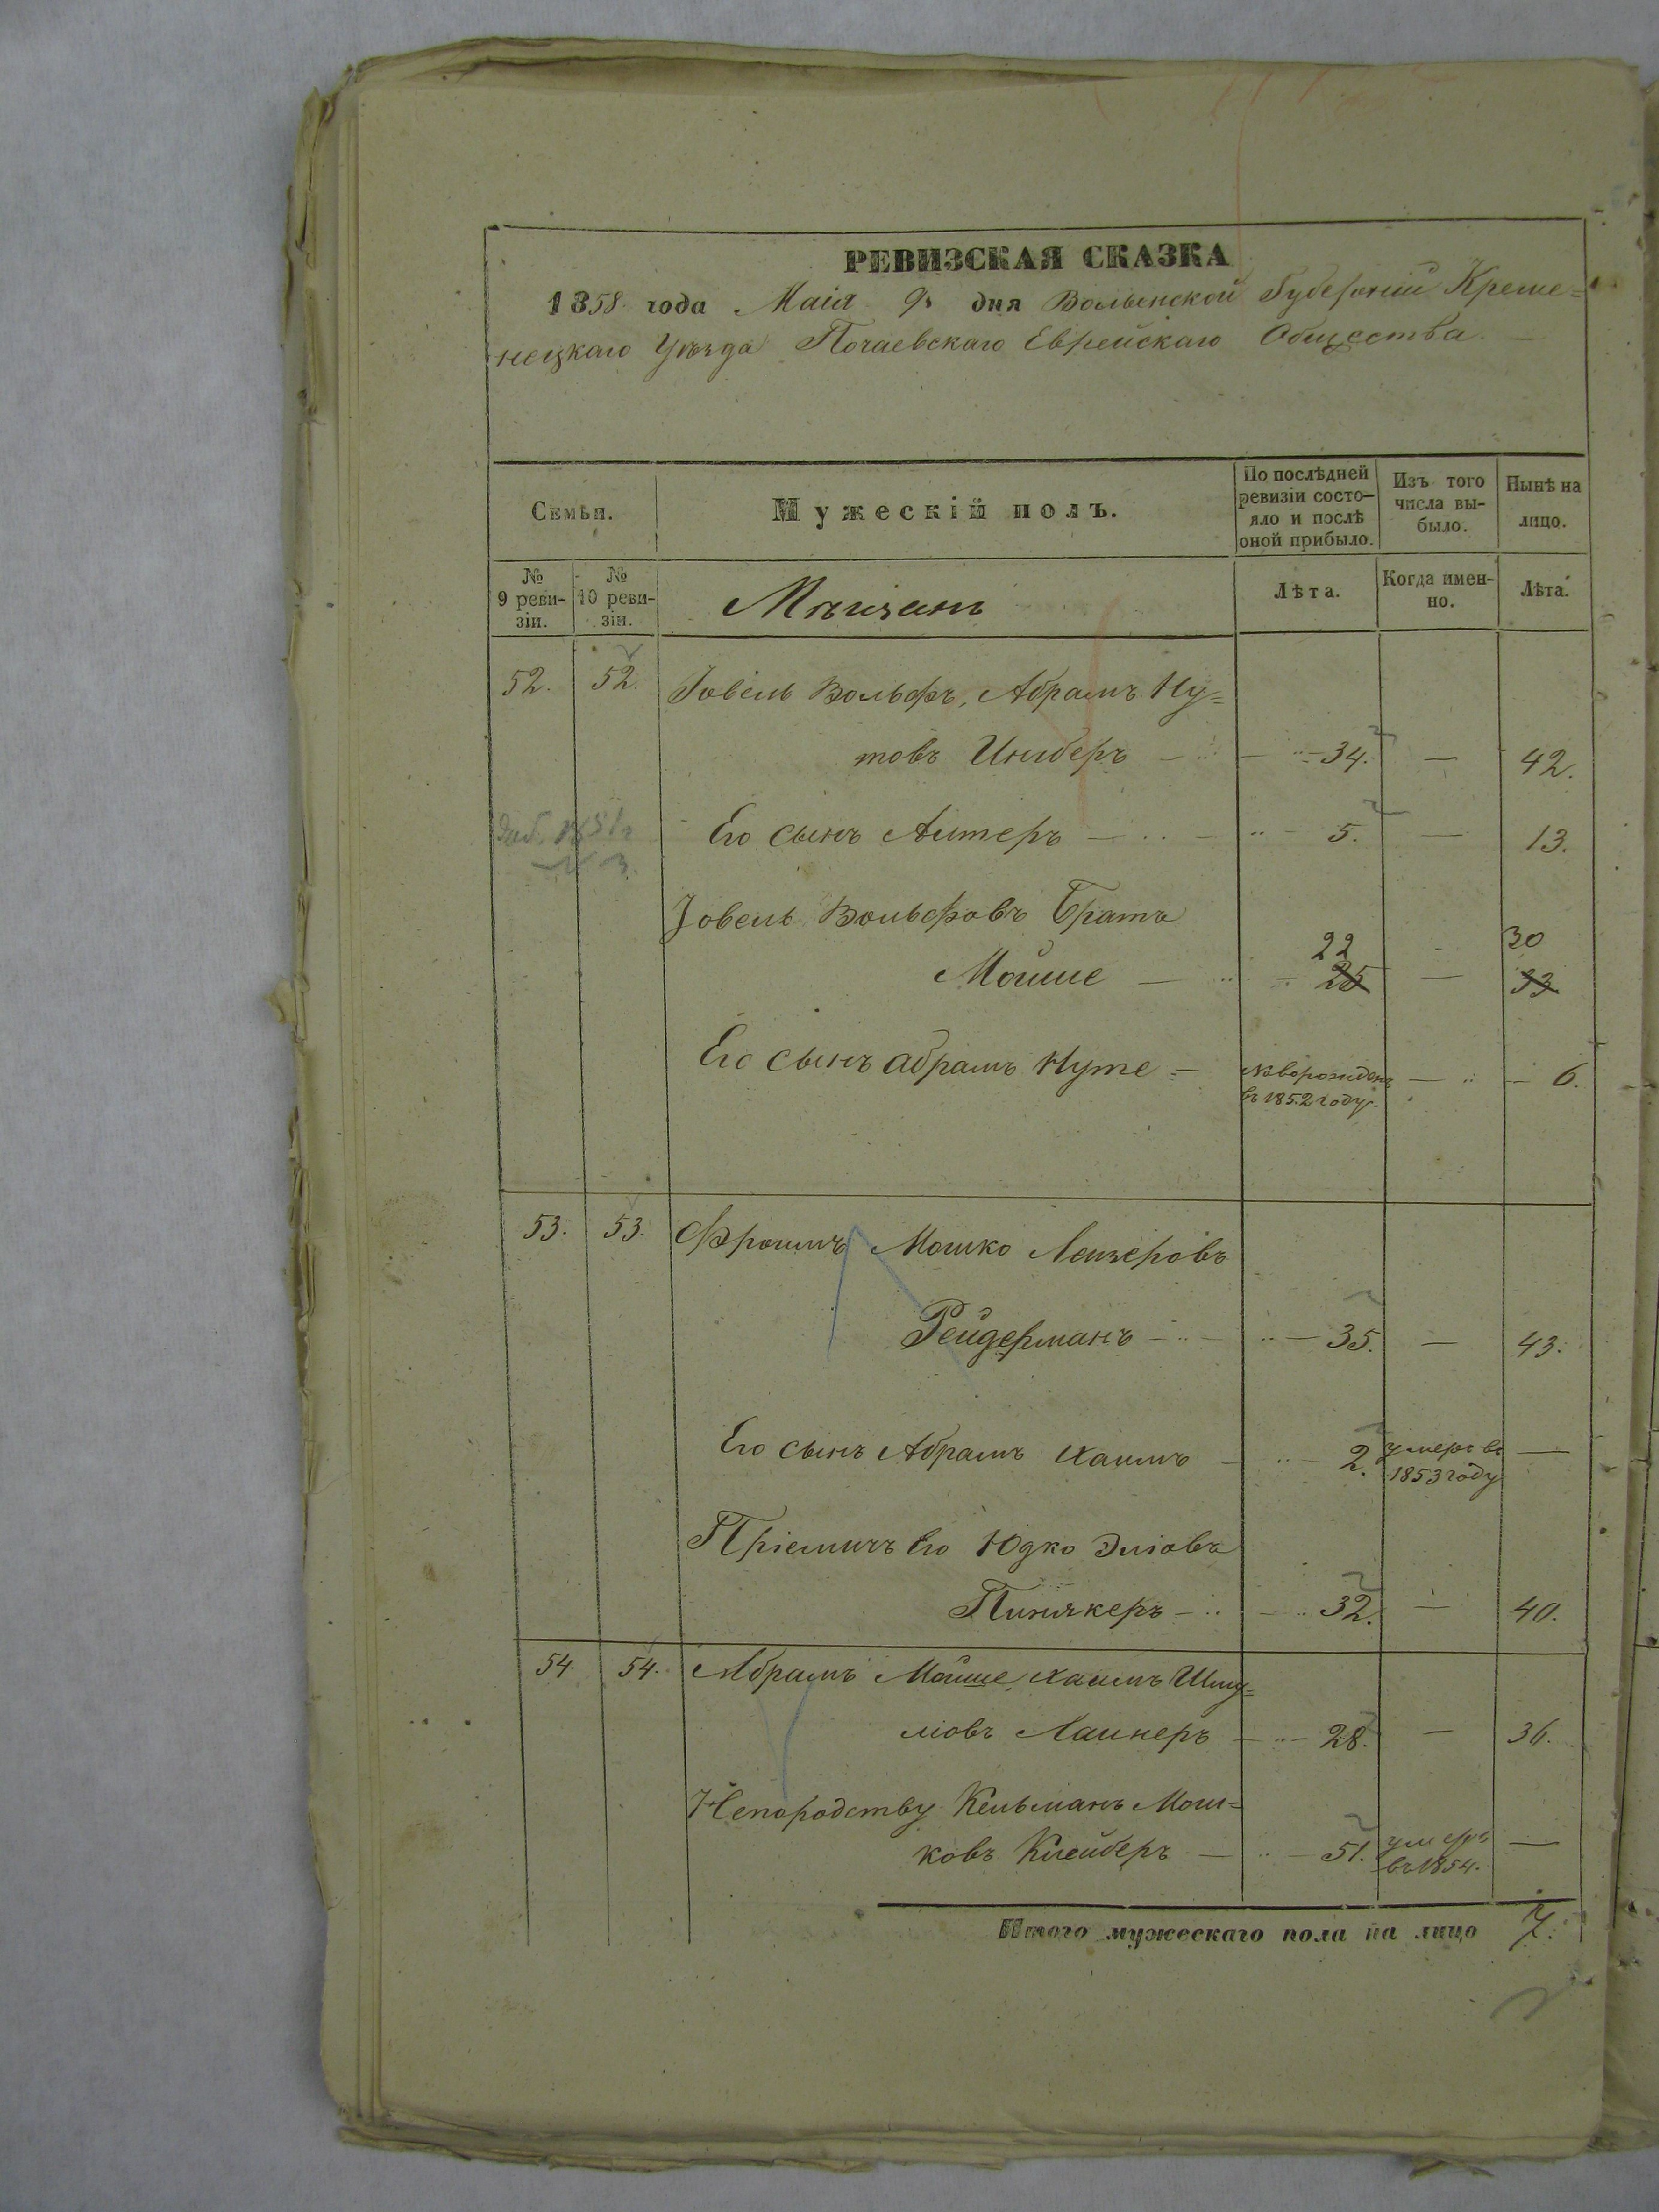 РЕВИЗСКАЯ СКАЗКА
1858 года Маія 9 дня Волынской Губерніи Креме=
нецкаго Уѣзда Почаевскаго Еврейскаго Общества
Семьи.
Мужескій полъ.
По послѣдней ревизіи состо-
яло и послѣ оной прибыло.
Изъ того числа вы-
было.
Нынѣ на лицо.
№ 9 реви-
зіи.
№ 10 реви-
зіи.
Мѣщанъ
Лѣта.
Когда имен-
но.
Лѣта.
52. 52. Іовель Вольфъ, Абрамъ Ну=
товъ — 34. — 42.
1851
Его сынъ Алтеръ — 5. — 13.
Іовель Вольфовъ Братъ
22 30
Мойше — 25 — 33
Его сынъ Абрамъ Нуте = новорожденъ — 6.
въ 1852 году
53. 53. Фроимъ Мошко Лейзеровъ
Рейдерманъ — 35. — 43.
Его сынъ Абрамъ Хаимъ — 2. умеръ въ —
1853 году
Пріемичъ Его Юдко Эліовъ
— 32. — 40.
54 54. Абрамъ Мойше Хаимъ Шму=
ліовъ Лайнеръ — 28. — 36.
Непородству Кельманъ Мош=
ковъ — 51. умеръ —
въ 1854.
Итого мужескаго пола на лицо 7.